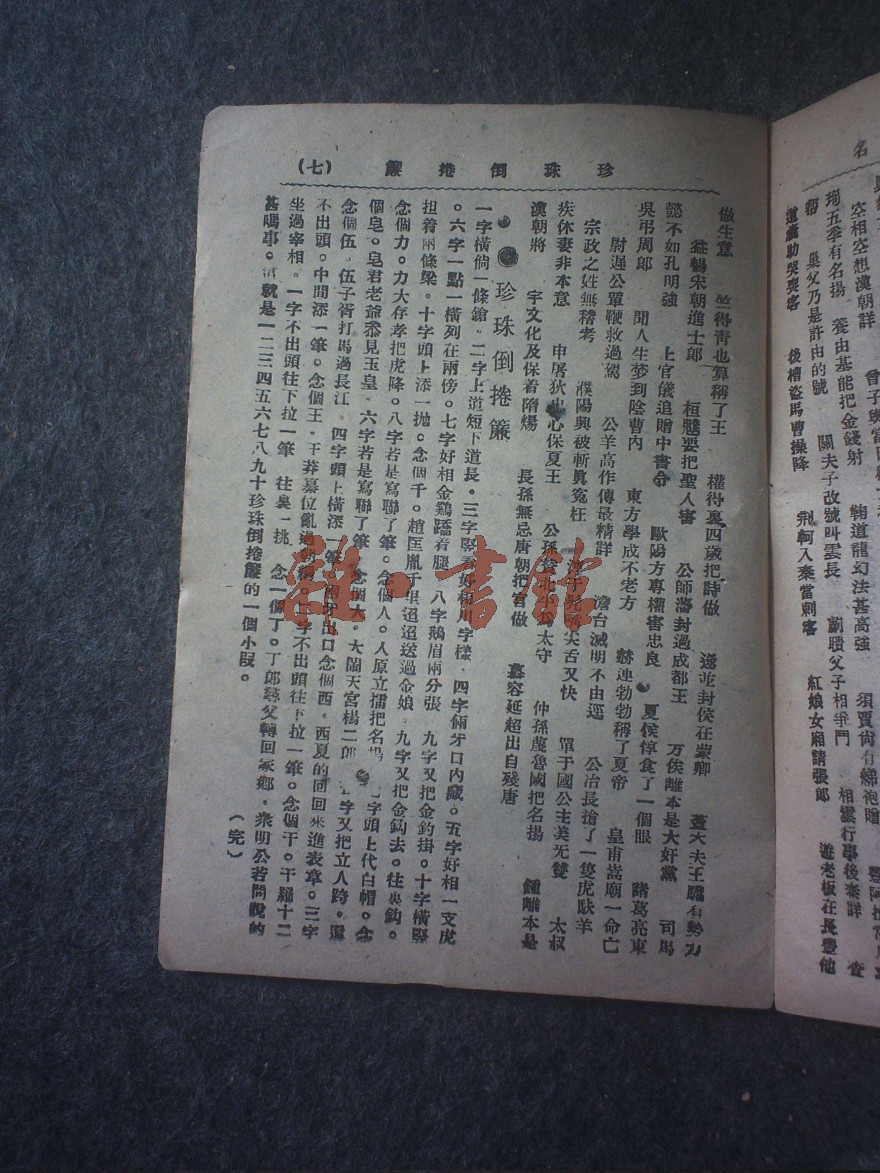 名
空相空想漢朝詳 曾子
須賈尚有綈袍贈
珣五季有名揚 養由基能把金錢射 朝道龍幻法甚高強
巢父乃是許由的號 關夫子改號叫雲長 蒯聵父子相爭鬥 相雲行事後秦詳 查
道蠡助哭喪客 後槽盜馬曹操降 荆軻入秦當刺客 紅娘女廂請張郎 遊老板在長豐他
珍珠倒捲簾 (七)
做生意 竺得靑也算稱了王 權得裏四歲把詩做 遂並封侯在蒙卿 蓋大夫王驩有勢力
益暢宋朝進士郎 桓魋要把聖人害 公師藩封過成都王 万俟離本是大奸黨 司馬
懿不如孔明強 上官儀追贈中書令 歐陽方專權害忠良 夏侯惇食了一個眼 諸葛亮東
吳弔周郎 聞人生夢到陰曹內 東方學成不老方 赫連勃勃稱了夏帝 皇甫嵩廟一命亡
尉遲公單鞭救過駕 公羊高作傳最精詳 澹台滅明不由逕 公冶長搶了一隻虎馱羊
宗政之姓無稽考 濮陽興破斬眞寃枉 尖舌又快 單于國公主美无雙 太叔
疾休妻非本意 申屠狄 心保夏王 公孫 太守 仲孫蔑魯國把名揚 鍾離本是
漢朝將 宇文化及保着隋煬 長孫無忌唐朝把官做 慕容延超出自殘唐
珍珠倒捲簾
一字橫倘一條鎗。二字上道短下道長。三字竪看好相川字樣。四字倆牙口內藏。五字好相一支虎
。六字一點一橫列在兩傍。七字好相金鷄蹻着腿。八字鵝眉兩分張 九字又把金釣掛。十字橫竪
担着兩條梁。十字頭上添一撇。念個千。趙匡胤千里迢迢送過金娘。九字又把金鈎去。往裏鈎。
念個力。力大存孝把虎降。八字若是寫聯了筆。念個人。人原立擂把名揚 七字頭上代白帽。念
個皂。皂君老爺忝見玉皇。六字若是寫聯了筆 念個大。大鬧天宮楊二郎 五字又把立人跨。還
念個伍。伍子胥打馬過長江。四字頭上橫添一筆。倆牙出口念個西。西夏的回回來進表章。三字
不出頭。中間添一筆。念個王。王莽慕位亂過朝綱。二字不出頭往下拉一筆。念個干。干羅十二
坐過宰相。一字不出頭往下拉一筆 往裏一挑 念一個丁。丁郎尋父轉回家鄉。衆明公若問說的
甚嗎事。這就是一二三四五六七八九十珍珠倒捲簾的一個小叚。
(完)
雜·書館